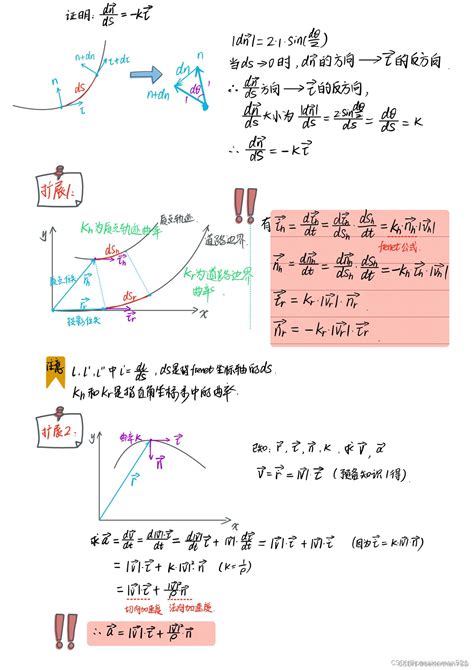 证明: dn⃗/ds = -kτ⃗
n+dn
τ+dτ
n
ds
τ
dn
n+dn
dθ
n
|dn⃗| = 2·1·sin(dθ/2)
当ds→0时, dn⃗的方向 → τ⃗的反方向
∴ dn⃗/ds 方向 → τ⃗的反方向,
dn⃗/ds 大小为 |dn⃗|/ds = 2sin(dθ/2)/ds = dθ/ds = k
∴ dn⃗/ds = -kτ⃗
扩展1:
y
kh为质点轨迹曲率
质点轨迹
道路边界
dsh
τ⃗h
kr为道路边界曲率
质点位矢
dsr
τ⃗r
投影位矢
x
有 τ̇⃗h = dτ⃗h/dt = dτ⃗h/dsh · dsh/dt = kh·n⃗h·|vh|
frenet公式
ṅ⃗h = dn⃗h/dt = dn⃗h/dsh · dsh/dt = -kh·τ⃗h·|vh|
τ̇⃗r = kr·|vr|·n⃗r
ṅ⃗r = -kr·|vr|·τ⃗r
注意
l, l', l'' 中 l' = dl/ds, ds是指frenet坐标轴的ds.
kh和kr是指直角坐标系中的曲率.
扩展2:
y
曲率k
τ⃗
n⃗
r⃗
x
已知: r⃗, τ⃗, n⃗, k. 求v⃗, a⃗
v⃗ = ṙ⃗ = |v|·τ⃗ (预备知识1得)
求a⃗ = dv⃗/dt = d|v|·τ⃗/dt = d|v|/dt·τ⃗ + |v|·dτ⃗/dt = |v̇|·τ⃗ + |v|·τ̇⃗ (因为τ̇⃗ = k·|v|·n⃗)
= |v̇|·τ⃗ + k·|v|²·n⃗ (k = 1/ρ)
= |v̇|·τ⃗ + |v|²/ρ·n⃗
切向加速度 法向加速度
∴ a⃗ = |v̇|·τ⃗ + |v|²/ρ·n⃗